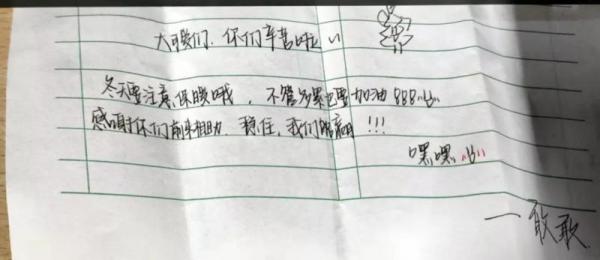 大可爱们.你们辛苦啦
冬天要注意保暖哦，不管多累也要加油888
感谢你们前来相助.稳住，我们能赢!!!
嘿嘿
一敢敢